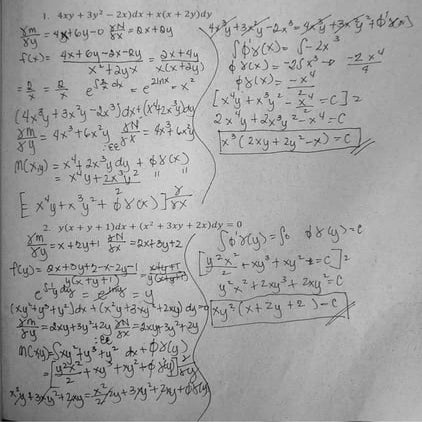 1. 4xy + 3y² − 2x)dx + x(x + 2y)dy
γm/γy = 4x + 6y − 0 γN/γx = 2x + 2y
f(x) = 4x + 6y − 2x − 2y / x² + 2yx = 2x + 4y / x(x + 2y)
= 2/x = 2/x e^∫2/x dx = e^2lnx = x²
(4x³y + 3x²y² − 2x³)dx + (x⁴ + 2x³y)dy
γm/γy = 4x³ + 6x²y γN/γx = 4x³ + 6x²y
∴ EE
M(x,y) = x⁴ + 2x³y dy + φγ(x)
= x⁴y + 2x³y²/2 " "
[ x⁴y + x³y² + φγ(x) ] γ/γx
4x³y + 3x²y² − 2x³ = 4x³y + 3x²y² + φ'γ(x)
∫φ'γ(x) = ∫−2x³
φγ(x) = −2∫x³ → −2x⁴/4
φγ(x) = −x⁴/2
[x⁴y + x³y² − x⁴/2 = C] 2
2x⁴y + 2x³y² − x⁴ = C
x³(2xy + 2y² − x) = C
2. y(x + y + 1)dx + (x² + 3xy + 2x)dy = 0
γm/γy = x + 2y + 1 γN/γx = 2x + 3y + 2
f(y) = 2x + 3y + 2 − x − 2y − 1 / y(x + y + 1) = x + y + 1 / y(x + y + 1)
e^∫1/y dy = e^lny = y
(xy² + y³ + y²)dx + (x²y + 3xy² + 2xy)dy = 0
γm/γy = 2xy + 3y² + 2y γN/γx = 2xy + 3y² + 2y
∴ EE
M(x,y) = ∫xy² + y³ + y² dx + φγ(y)
= [y²x²/2 + xy³ + xy² + φγ(y)] γ/γy
x²y + 3xy² + 2xy = x²/2 2y + 3xy² + 2xy + φ'γ(y)
∫φ'γ(y) = ∫0 φγ(y) = C
[y²x²/2 + xy³ + xy² = C] 2
y²x² + 2xy³ + 2xy² = C
xy²(x + 2y + 2) = C